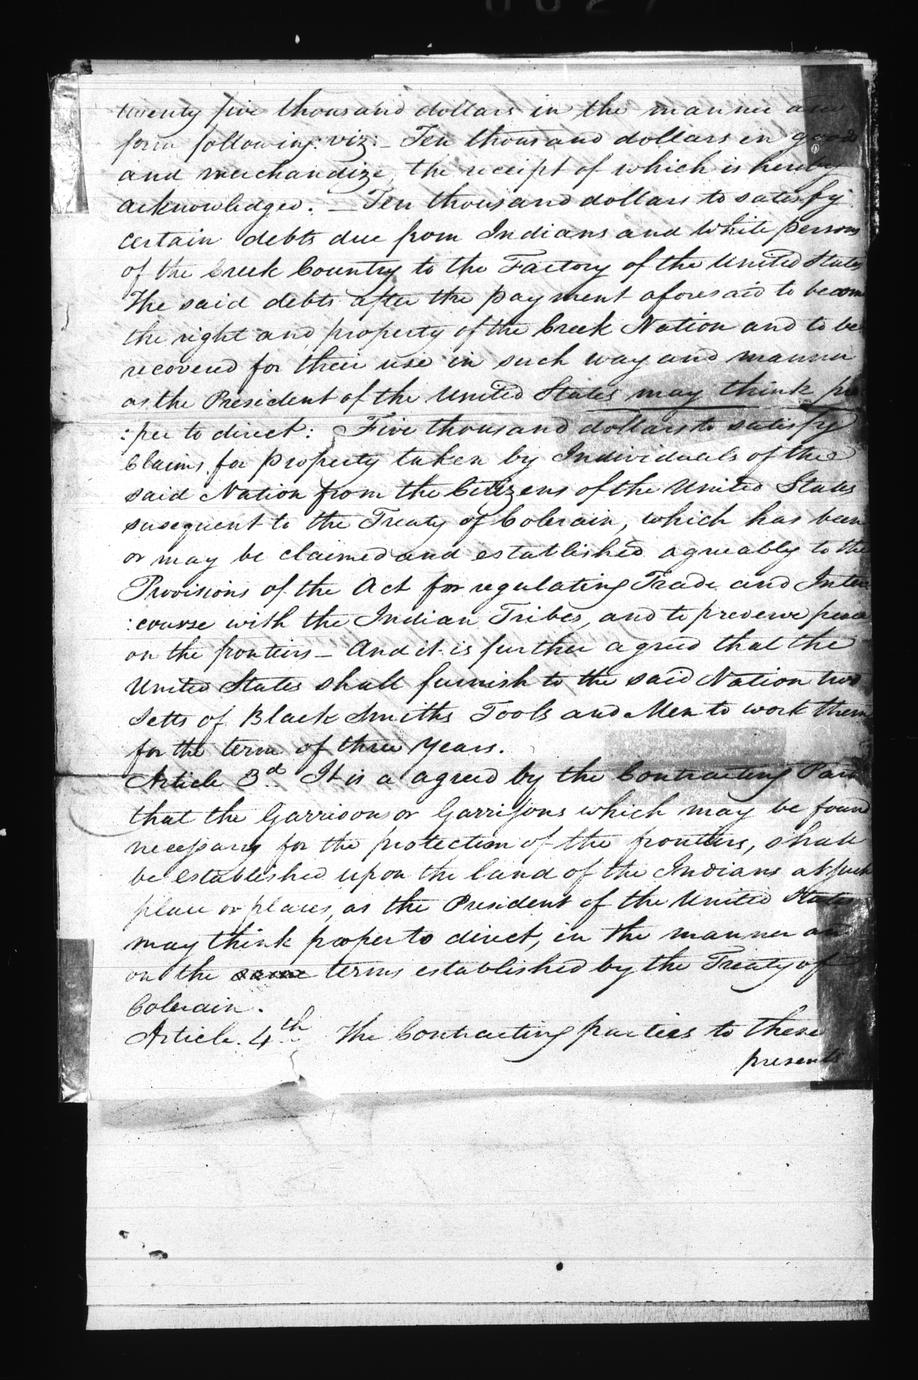 twenty five thousand dollars in the manner and
form following, viz: – Ten thousand dollars in goods
and merchandize, the receipt of which is hereby
acknowledged. – Ten thousand dollars to satisfy
certain debts due from Indians and white persons
of the Creek Country to the Factory of the United States
The said debts after the payment aforesaid to become
the right and property of the Creek Nation and to be
recovered for their use in such way and manner
as the President of the United States may think pro
:per to direct: Five thousand dollars to satisfy
Claims for property taken by Individuals of the
said Nation from the Citizens of the United States
susequent to the Treaty of Colerain, which has been
or may be claimed and established agreeably to the
Provisions of the Act for regulating Trade and Inter
:course with the Indian Tribes, and to preserve peace
on the frontiers – And it is further agreed that the
United States shall furnish to the said Nation two
Setts of Black Smiths Tools and Men to work them
for the term of three years.
Article 3d. It is a agreed by the Contracting Parties
that the Garrison or Garrisons which may be found
necessary for the protection of the frontiers, shall
be established upon the land of the Indians at such
place or places, as the President of the United States
may think proper to direct, in the manner and
on the same terms established by the Treaty of
Colerain.
Article. 4th. The Contracting parties to these
presents